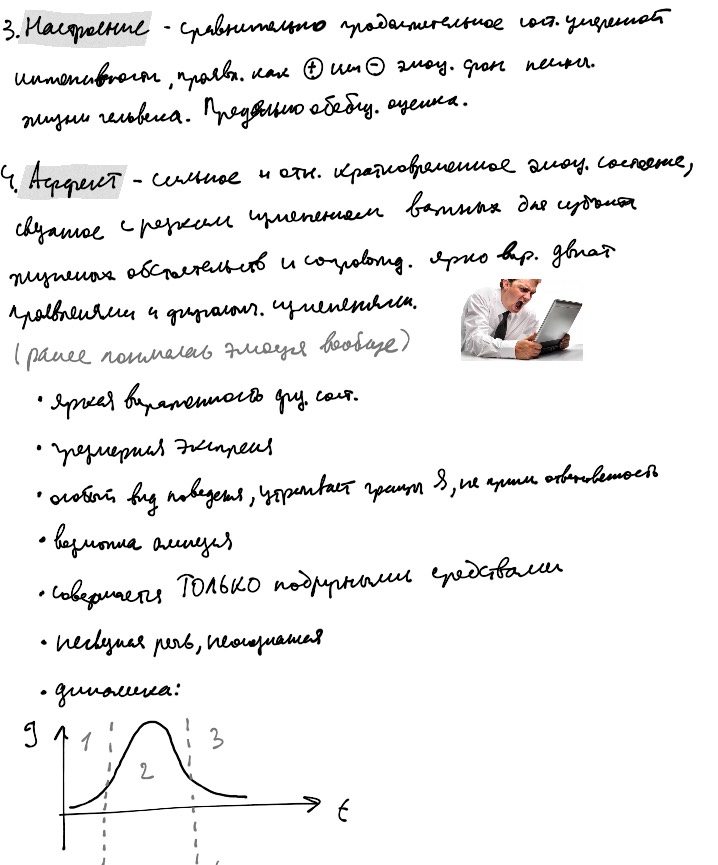 3. Настроение - сравнительно продолжительное сост. умеренной
интенсивности, проявл. как + или - эмоц. фон психич.
жизни человека. Предельно обобщ. оценка.
4. Аффект - сильное и отн. кратковременное эмоц. состояние,
связанное с резким изменением важных для субъекта
жизненных обстоятельств и сопровожд. ярко выр. двигат
проявлениями и физиолог. изменениями.
(ранее понималась эмоция вообще)
• яркая выраженность физ. сост.
• чрезмерная экспрессия
• особый вид поведения, утрачивает границы Я, не приним ответственность
• возможна амнезия
• совершается ТОЛЬКО подручными средствами
• несвязная речь, неосознанная
• динамика:
1 2 3
t